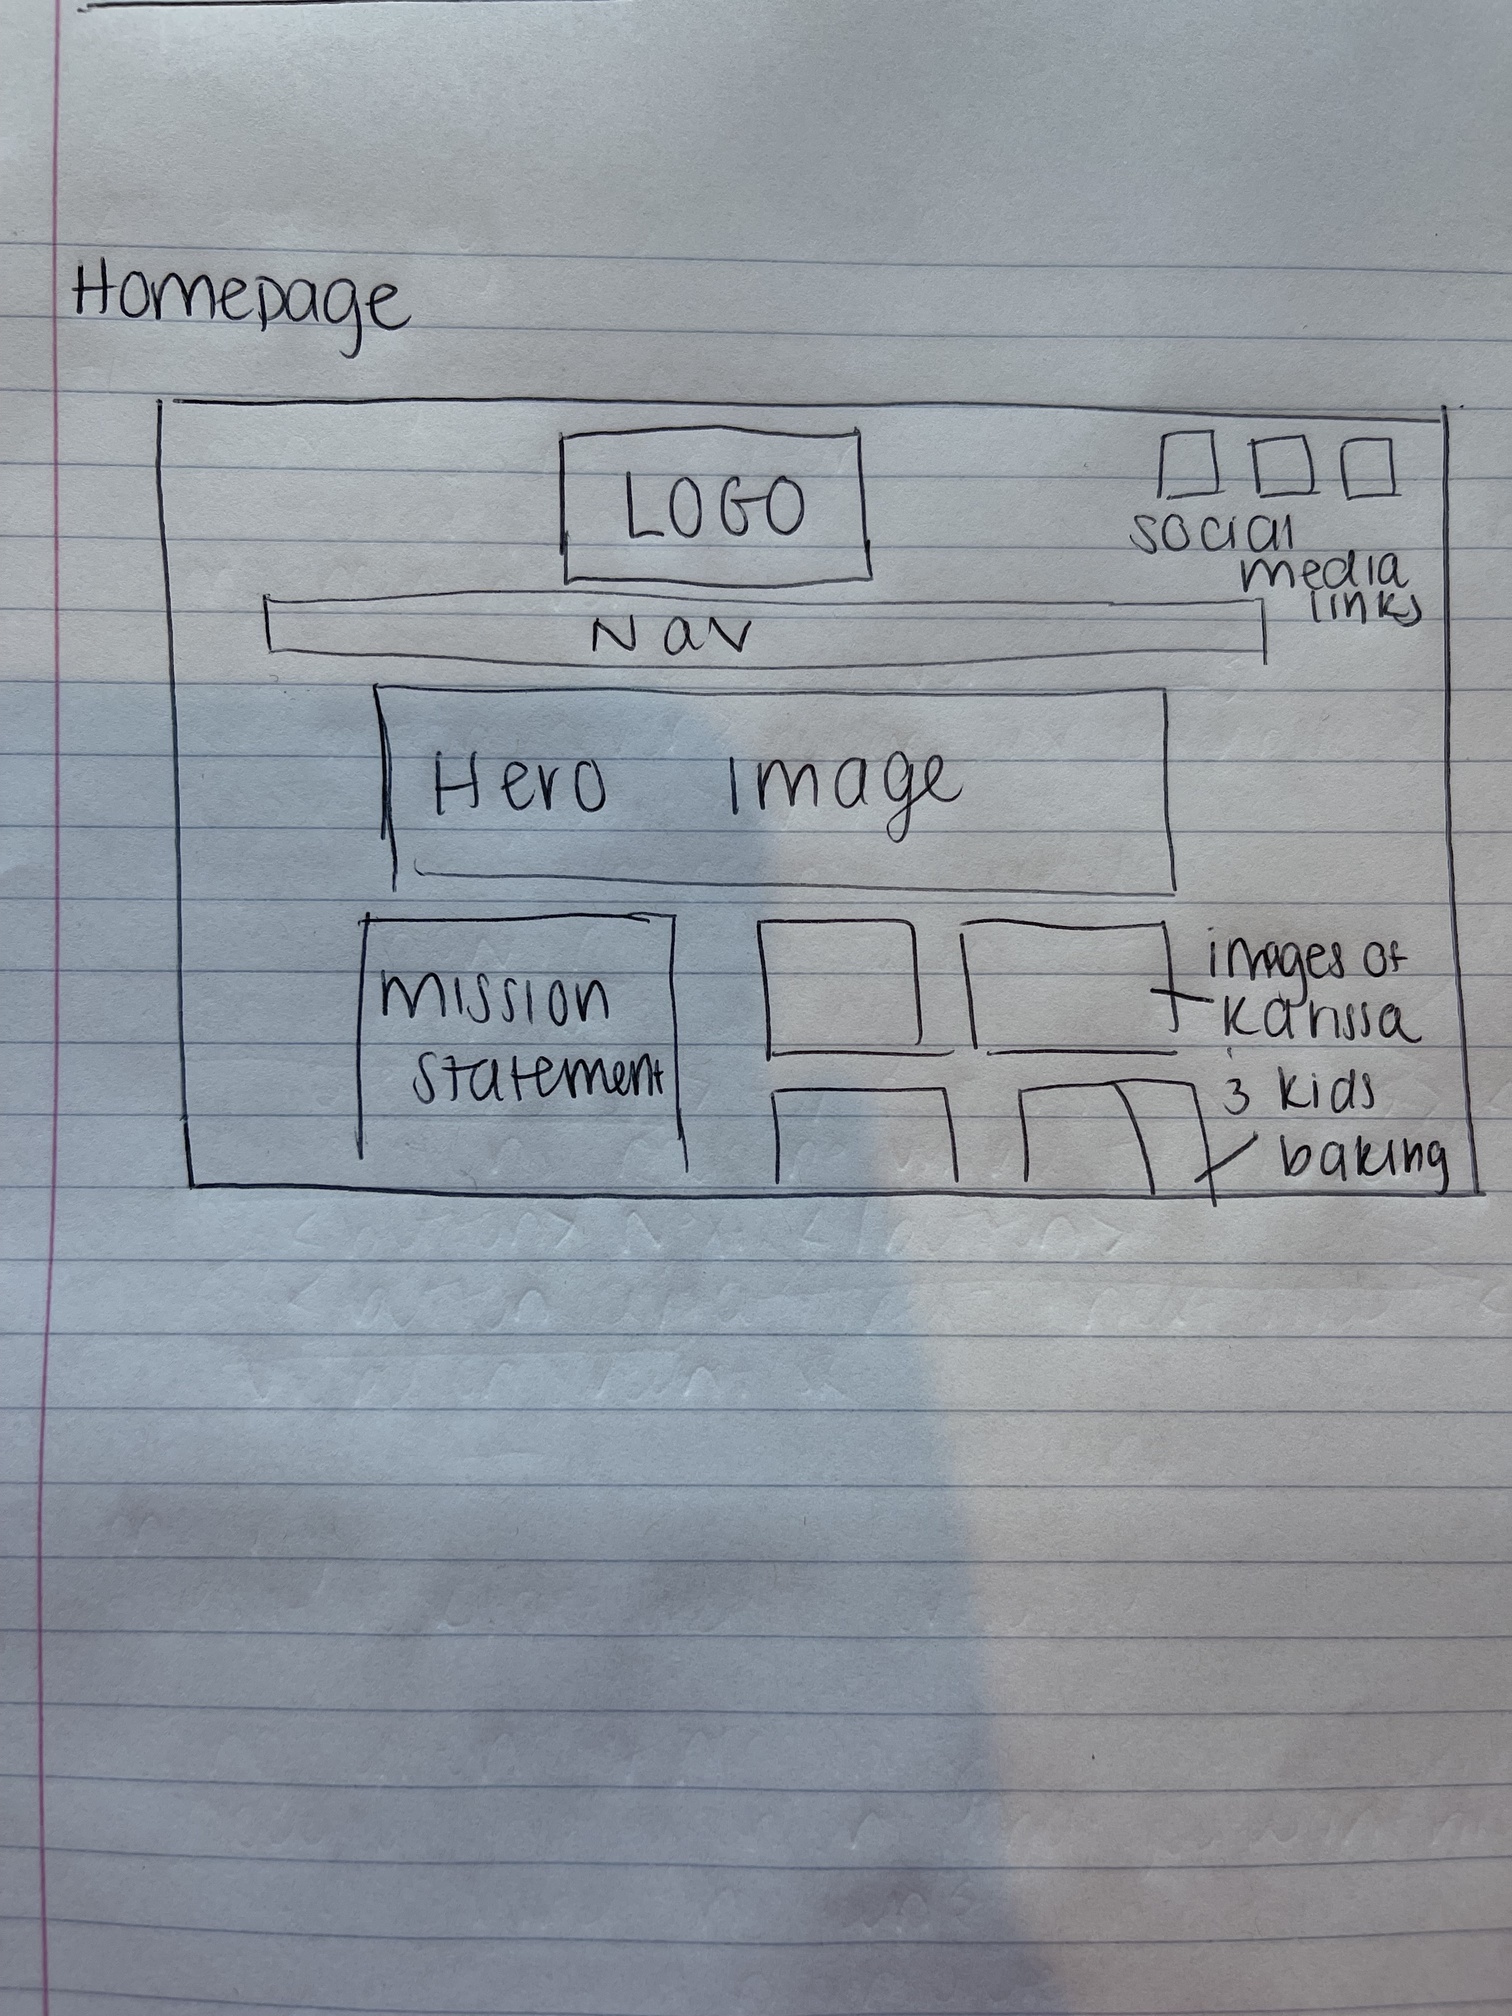 Homepage
LOGO
social
media
links
Nav
Hero Image
mission
statement
images of
Karissa
3 kids
baking